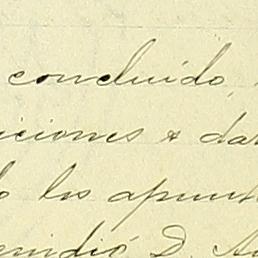 concluido,
iciones & dar
o los apunt
endió D. A